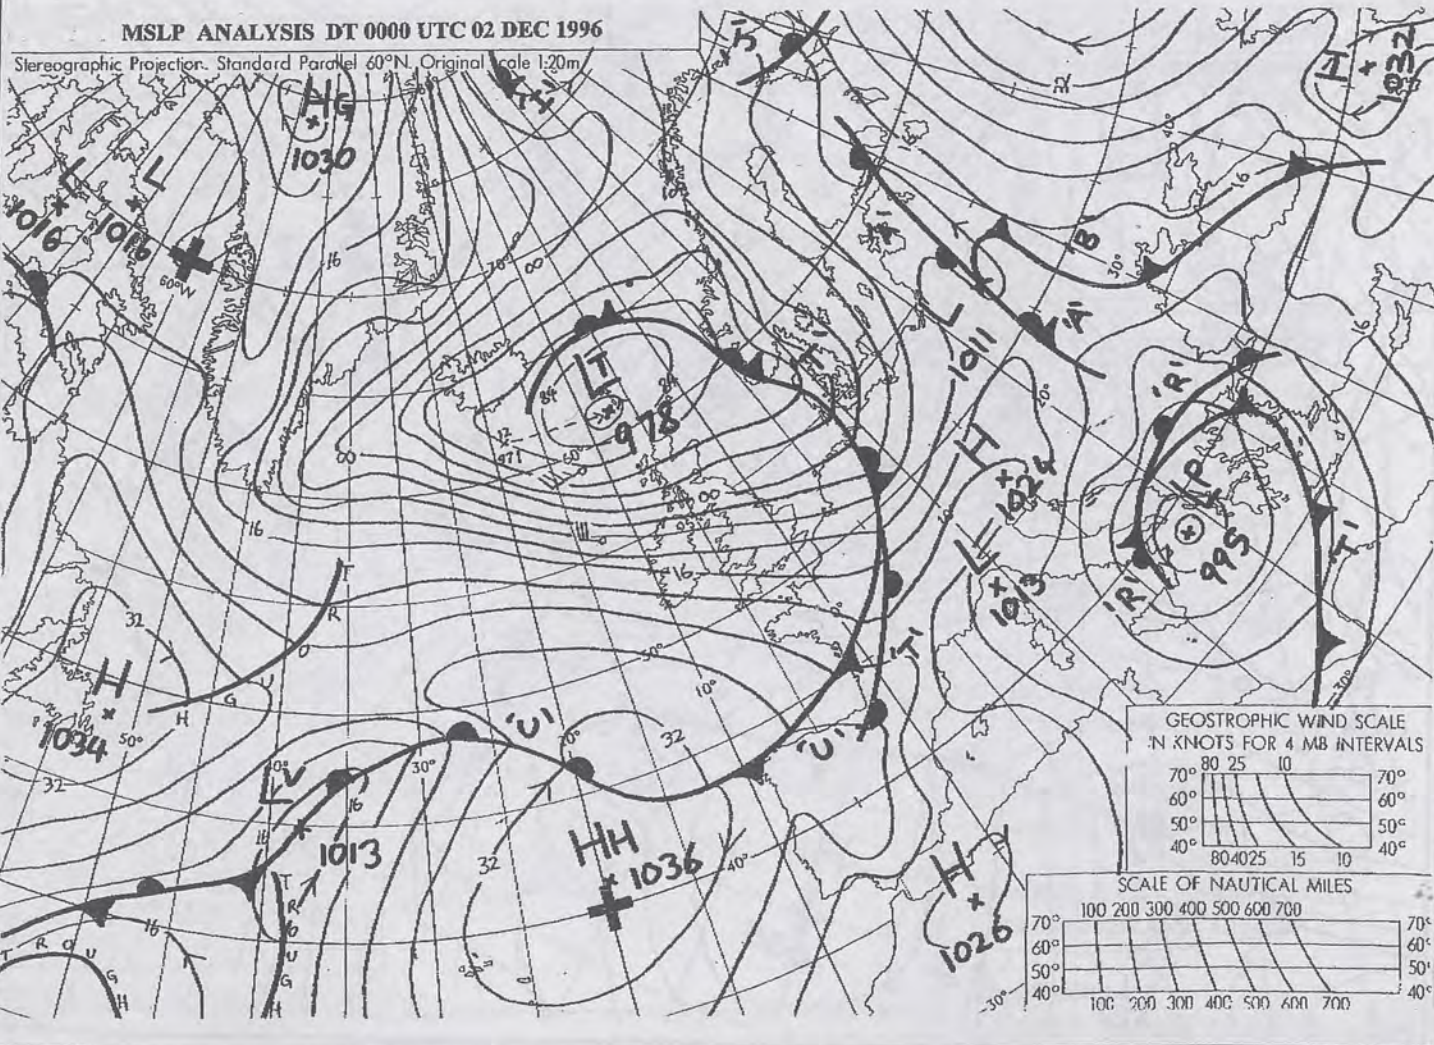 MSLP ANALYSIS DT 0000 UTC 02 DEC 1996
Stereographic Projection. Standard Parallel 60°N. Original Scale 1:20m
'J'
H
1032
HG
1030
'H'
L
1016
L
1016
60°W
16
70°
00
16
40°
'A'
B
30°
16
'A'
L
1011
16
LT
978
84
971
60°
'T'
00
00
20°
'R'
H
1024
10°
LP
995
'T'
'R'
L
1013
16
16
T
R
O
U
G
H
32
H
1034
50°
32
50°
10°
'U'
20°
32
'U'
'T'
30°
LV
1013
16
16
32
HH
1036
40°
H
1026
16
TROUGH
TROUGH
30°
30°
GEOSTROPHIC WIND SCALE
IN KNOTS FOR 4 MB INTERVALS
80 25 10
70° 70°
60° 60°
50° 50°
40° 40°
80 40 25 15 10
SCALE OF NAUTICAL MILES
100 200 300 400 500 600 700
70° 70°
60° 60°
50° 50°
40° 40°
100 200 300 400 500 600 700